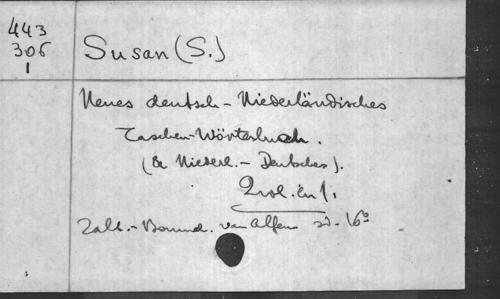 443
306
1
Susan (S.)
Neues deutsch-Niederländisches
Taschen-Wörterbuch.
(& Niederl.- Deutsches).
2 vol. en 1.
Zalt.-Bommel. van Alfens sd. 16º